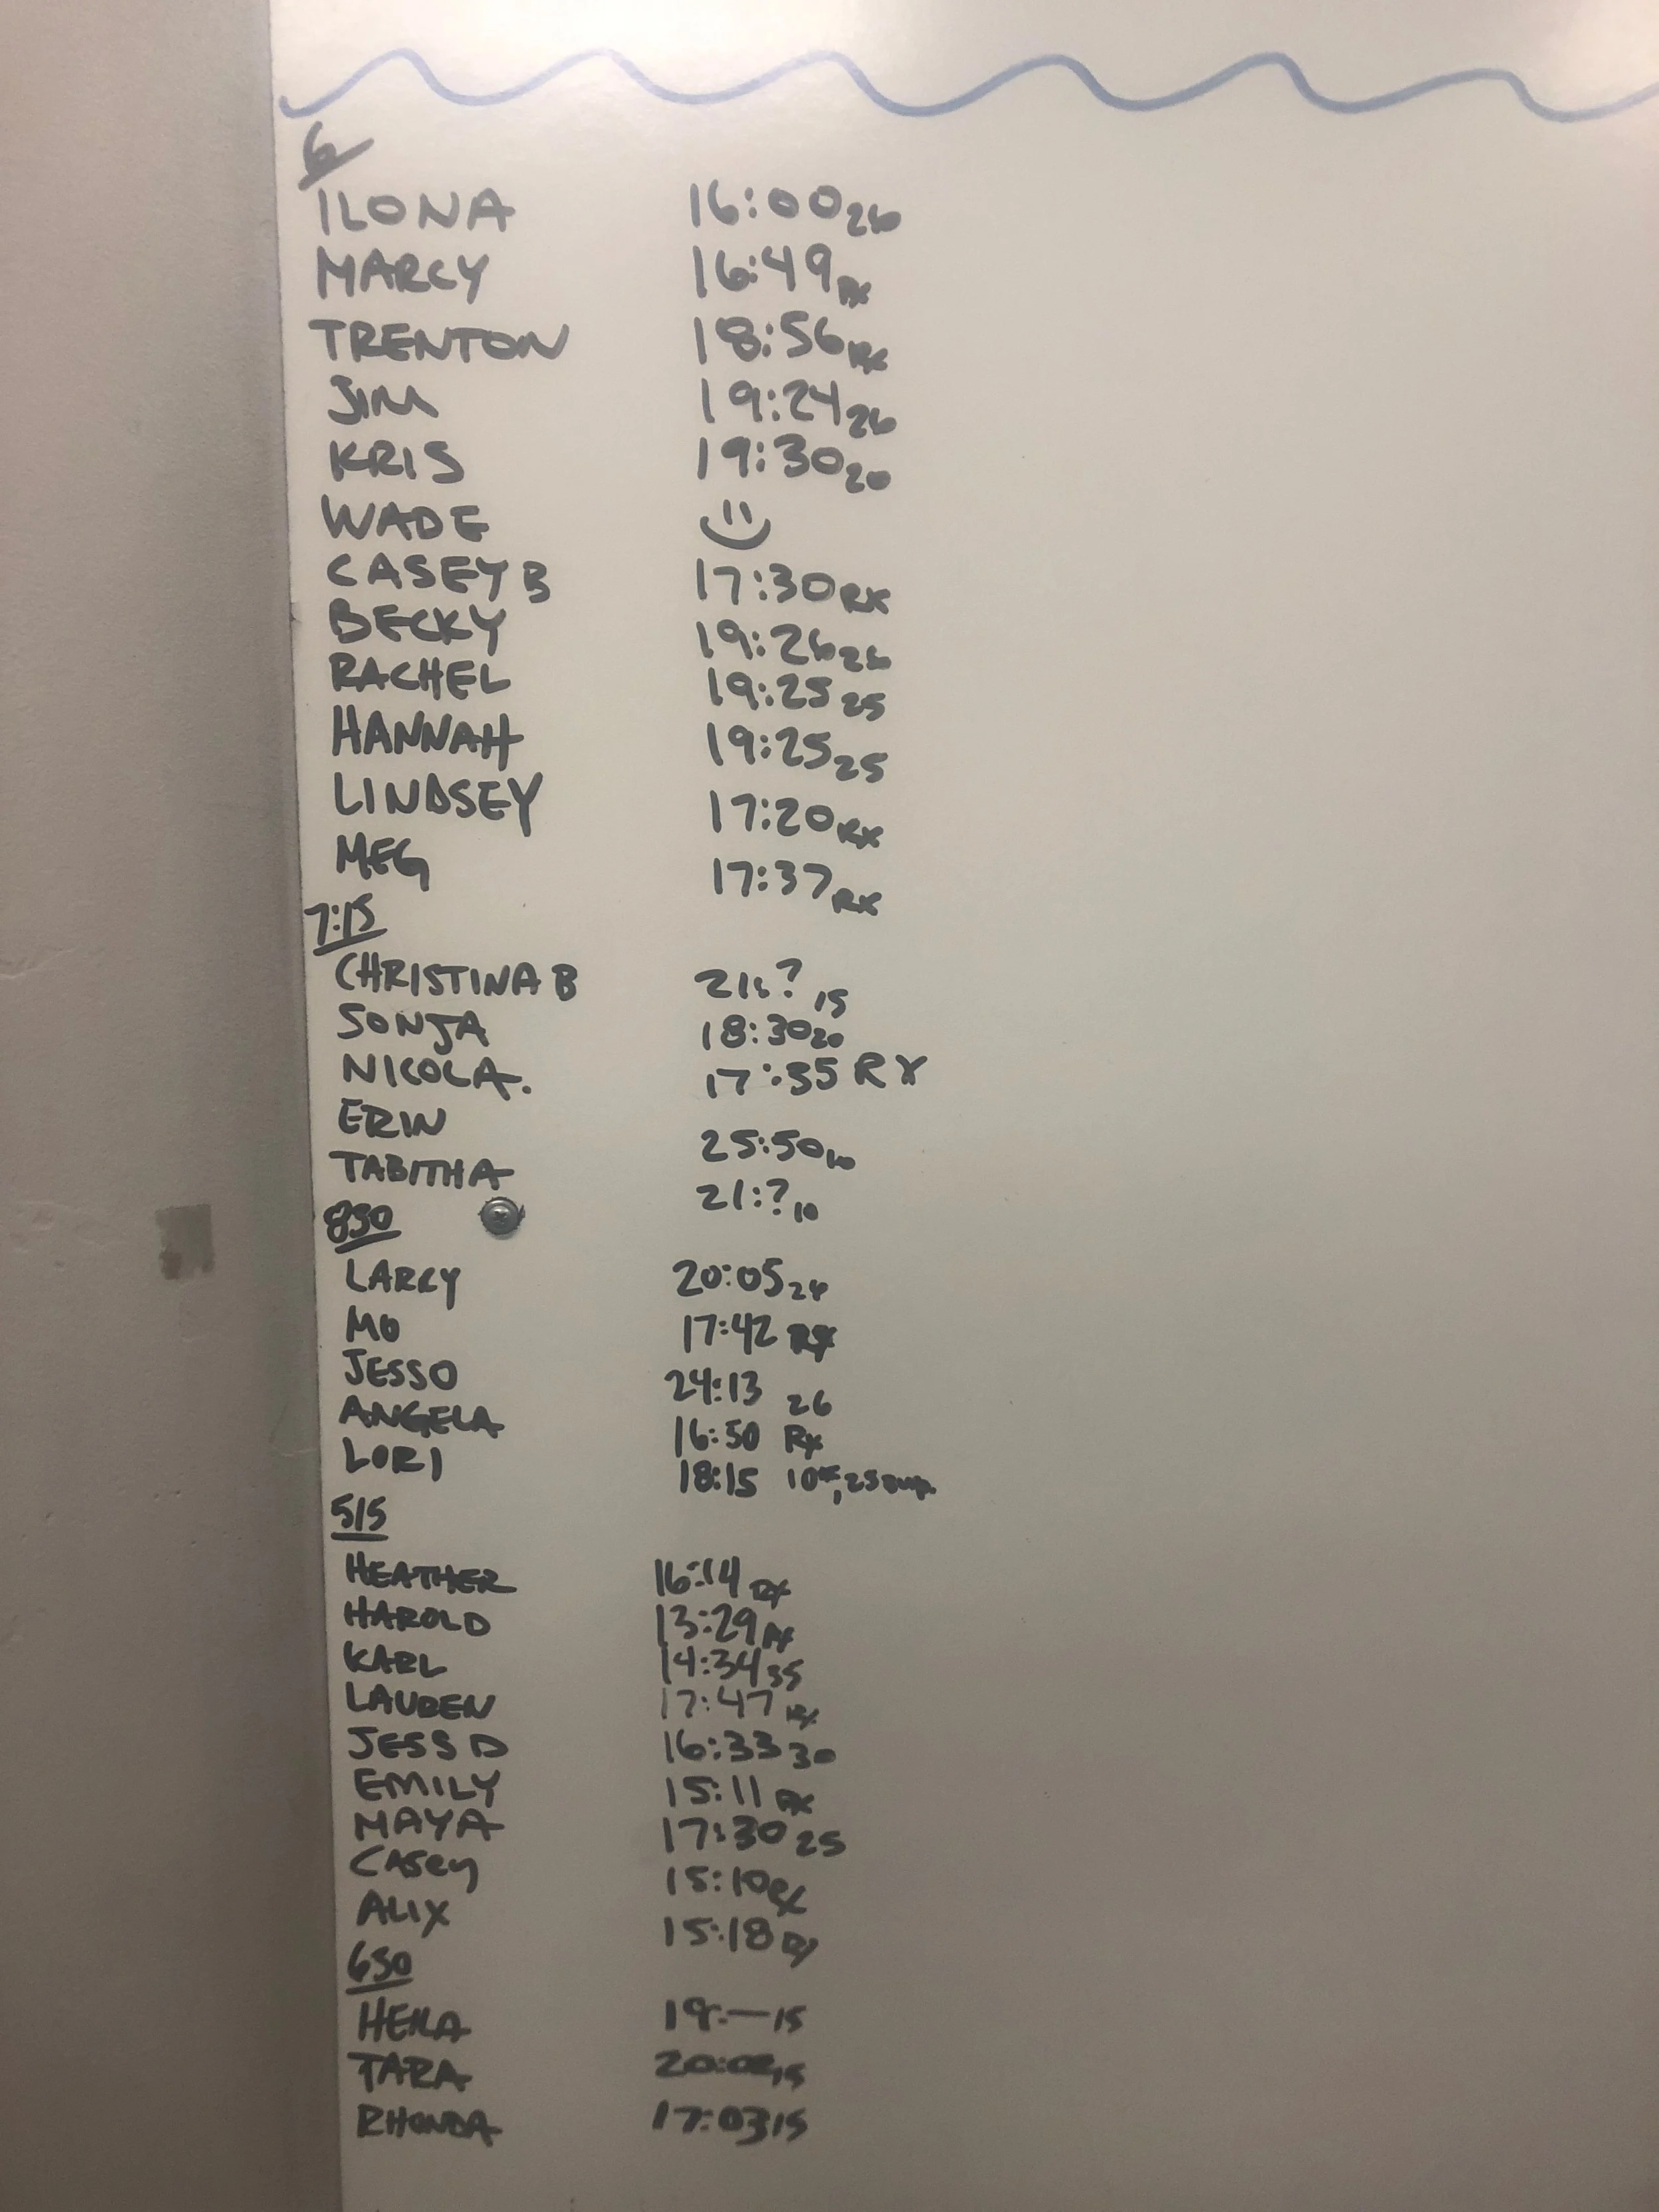 6
ILONA 16:00 26
MARCY 16:49 RX
TRENTON 18:56 RX
JIM 19:24 26
KRIS 19:30 20
WADE
CASEY B 17:30 RX
BECKY 19:26 26
RACHEL 19:25 25
HANNAH 19:25 25
LINDSEY 17:20 RX
MEG 17:37 RX
7:15
CHRISTINA B 21:? 15
SONJA 18:30 20
NICOLA. 17:35 RX
ERIN 25:50 10
TABITHA 21:? 10
830
LARRY 20:05
MO 17:42 RX
JESS O 24:13 26
ANGELA 16:50 RX
LORI 18:15
515
HEATHER 16:14 RX
HAROLD 13:29 RX
KARL 14:34 35
LAUREN 17:47 RX
JESS D 16:33 30
EMILY 15:11 RX
MAYA 17:30 25
CASEY 15:10 RX
ALIX 15:18 RX
630
19:— 15
TARA
RHONDA 17:03 15